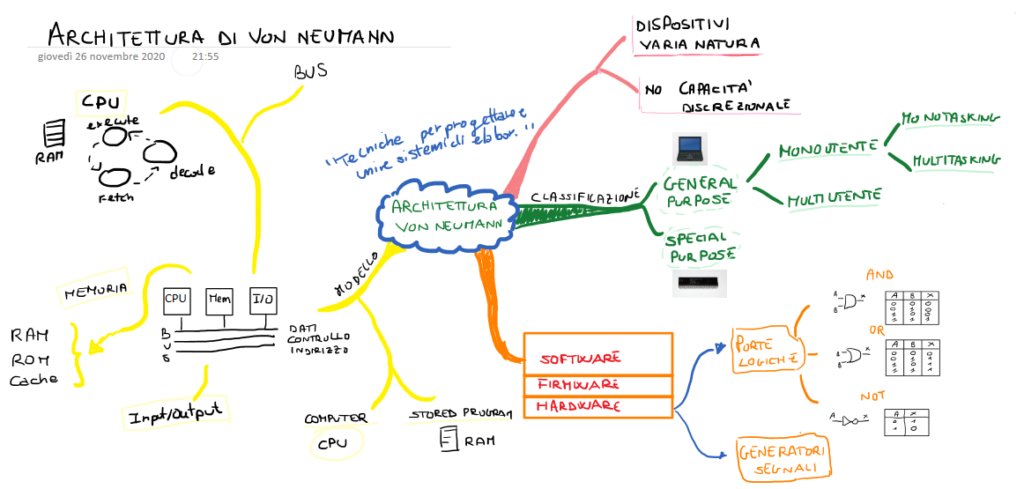 ARCHITETTURA DI VON NEUMANN
giovedì 26 novembre 2020 21:55
BUS
CPU
execute
RAM
decode
Fetch
"Tecniche per progettare e
unire sistemi di elabor."
DISPOSITIVI
VARIA NATURA
NO CAPACITA'
DISCREZIONALE
ARCHITETTURA
VON NEUMANN
CLASSIFICAZIONE
GENERAL
PURPOSE
MONOUTENTE
MONOTASKING
MULTITASKING
MULTIUTENTE
SPECIAL
PURPOSE
MODELLO
MEMORIA
RAM
ROM
Cache
CPU
Mem
I/O
BUS
DATI
CONTROLLO
INDIRIZZO
Input/Output
COMPUTER
CPU
STORED PROGRAM
RAM
SOFTWARE
FIRMWARE
HARDWARE
PORTE
LOGICHE
AND
A B X
OR
A B X
NOT
A X
0 1
1 0
GENERATORI
SEGNALI